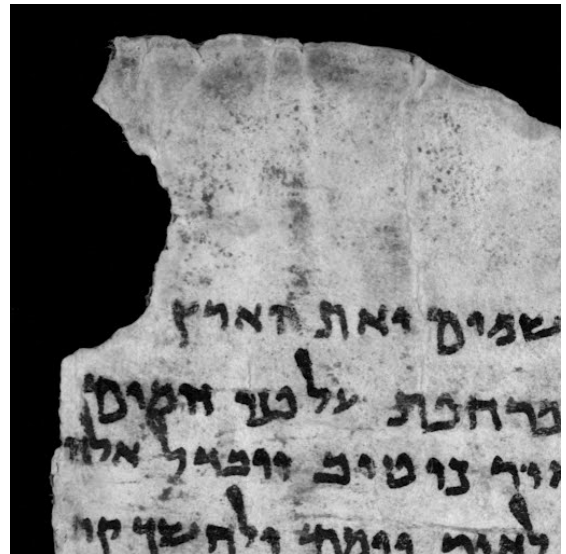 שמים ואת הארץ
מרחפת על פני המים
אור כי טוב ויבדל אלה
לאור יומם ולחשך קר